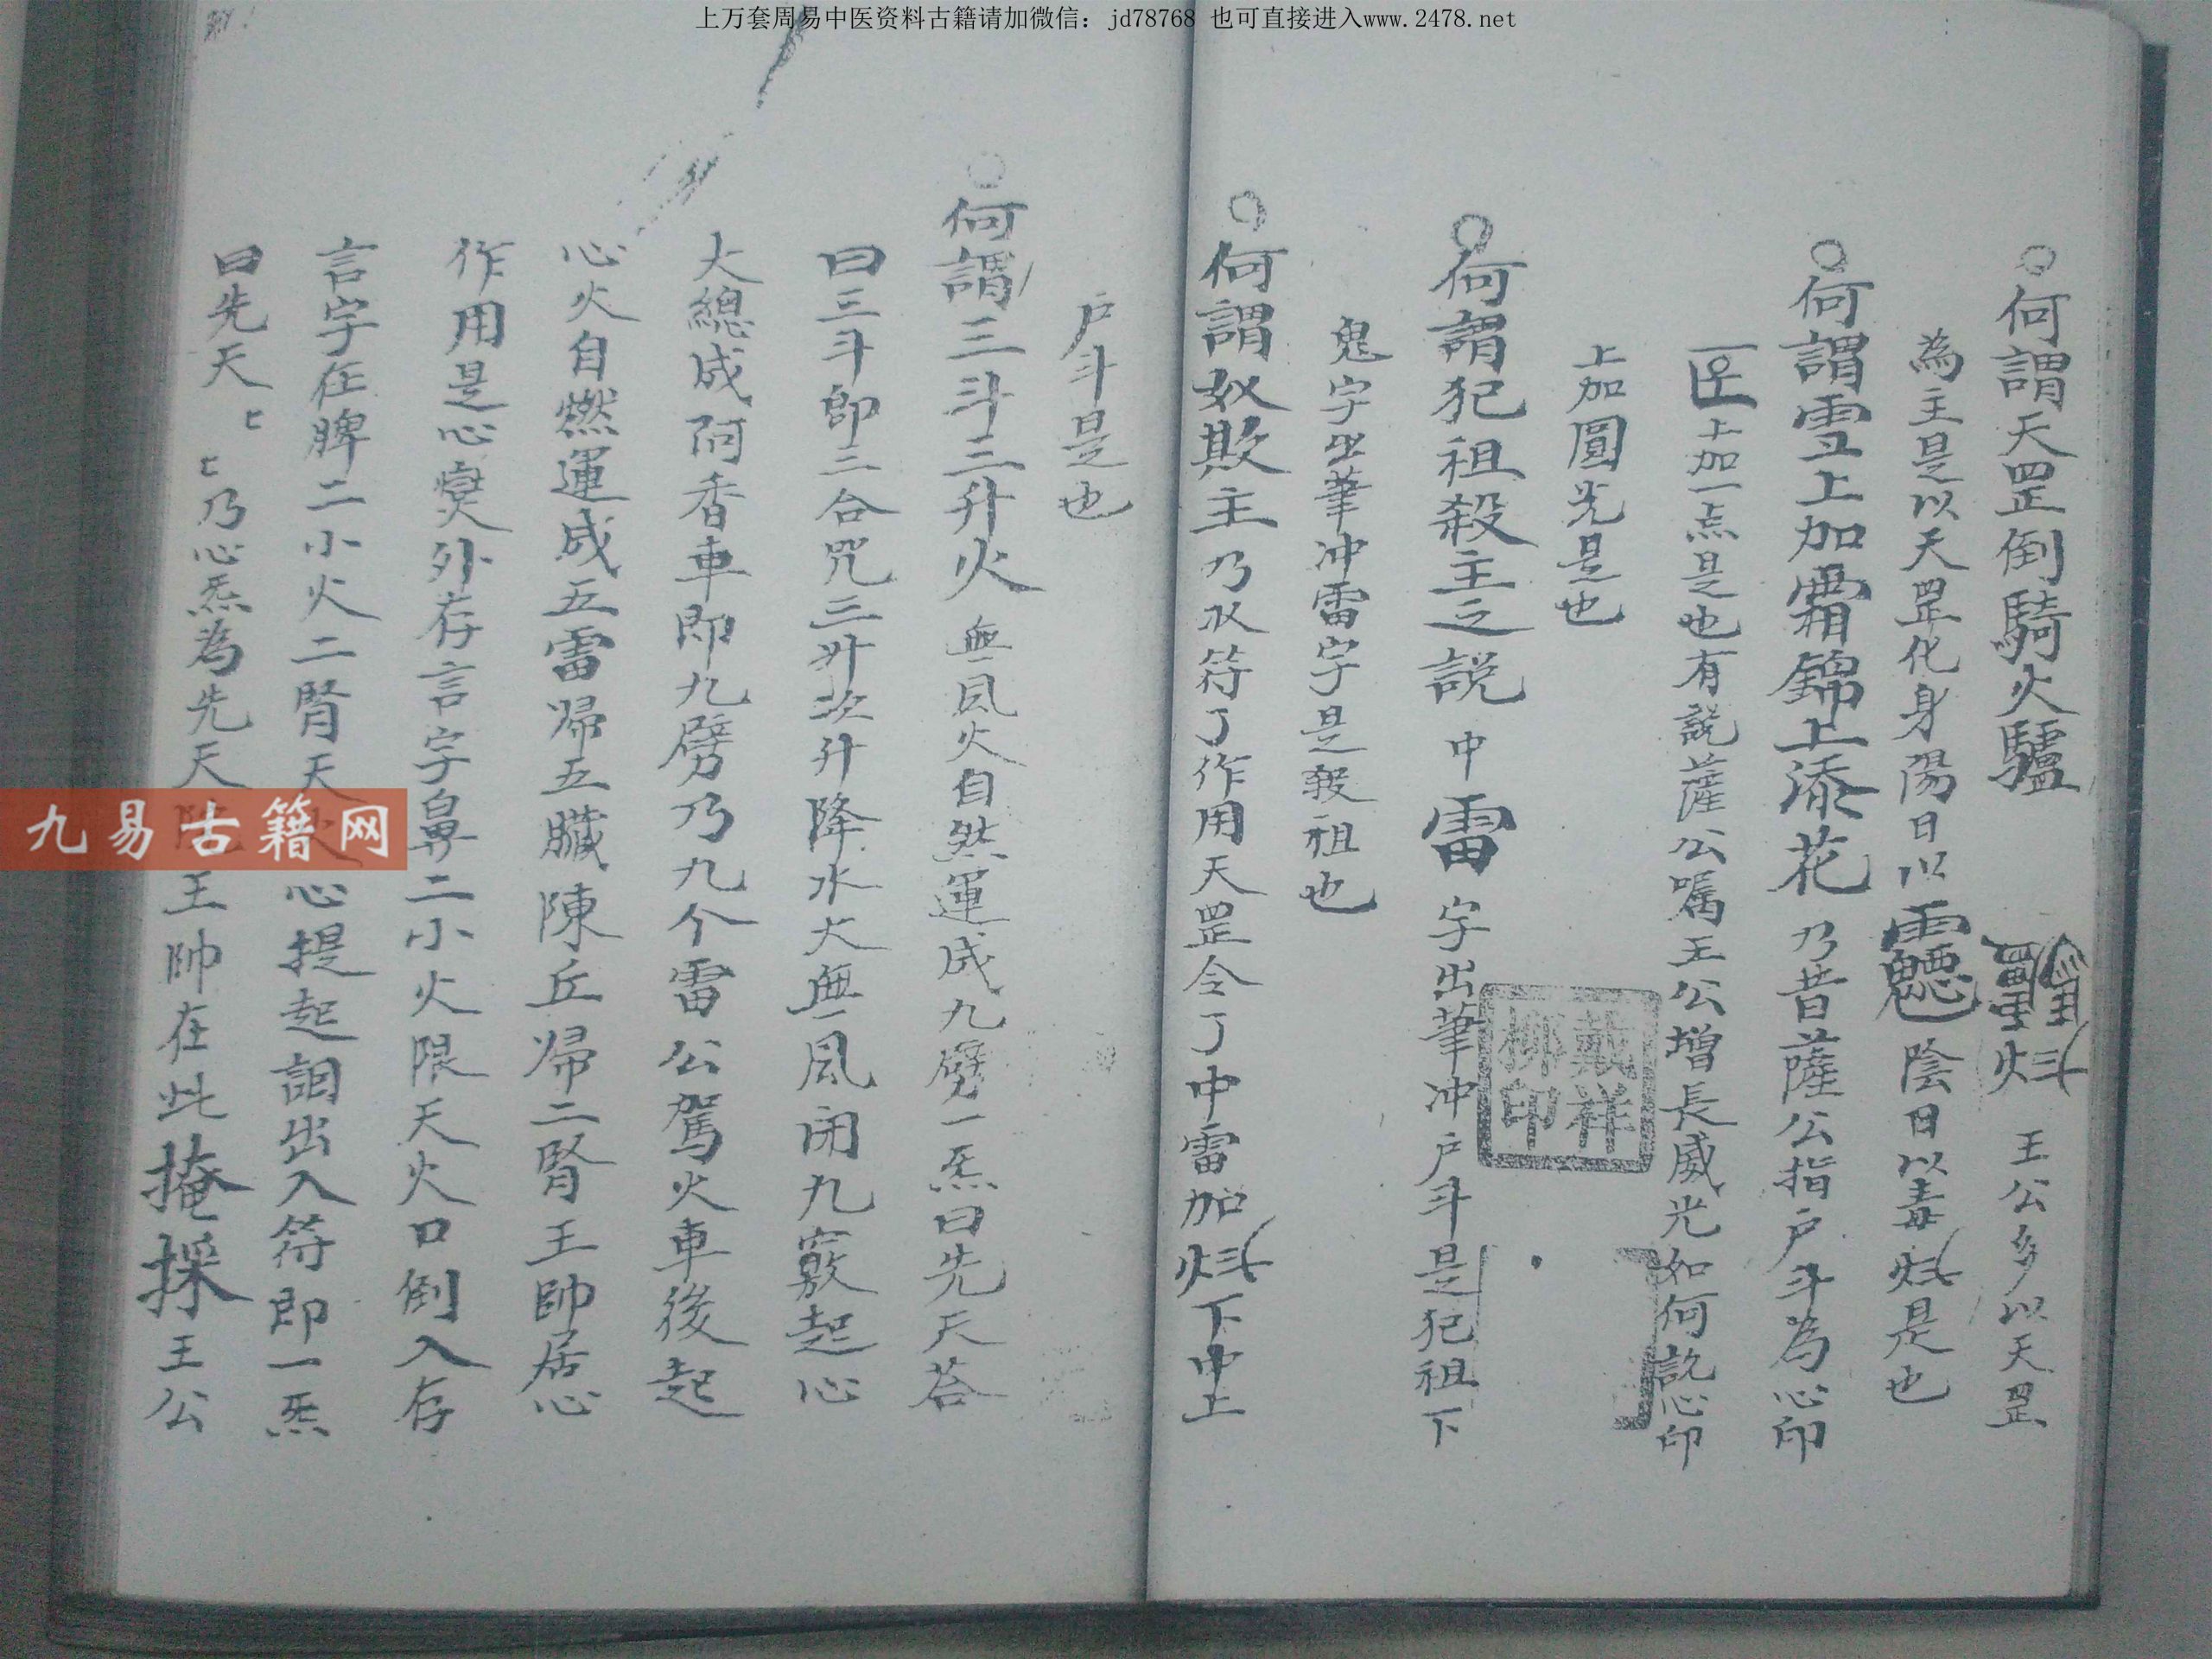 上万套周易中医资料古籍请加微信：jd78768 也可直接进入www.2478.net
○何謂天罡倒騎火驢 王公多以天罡
為主是以天罡化身陽日以 陰日以毒 是也
○何謂雪上加霜錦上添花乃昔薩公指户斗為心印
上加一点是也有説薩公嘱王公增長威光如何説心印
上加圓光是也
○何謂犯祖殺主之説中雷字出筆冲户斗是犯祖下
鬼字出筆冲雷字是殺祖也
○何謂奴欺主乃水符了作用天罡令了中雷加 下中上
户斗是也
○何謂三斗三升火無風火自然運成九劈一炁曰先天荅
曰三斗即三合咒三升次升降水大無風闭九竅起心
大總成阿香車即九劈乃九个雷公駕火車後起
心火自燃運成五雷帰五臟陳丘帰二腎王帥居心
作用是心 外存言字鼻二小火限天火口倒入存
言字在脾二小火二腎天 心提起 出入符即一炁
曰先天 乃心炁為先天 王帥在此掩採王公
戴祥柳印
九易古籍网